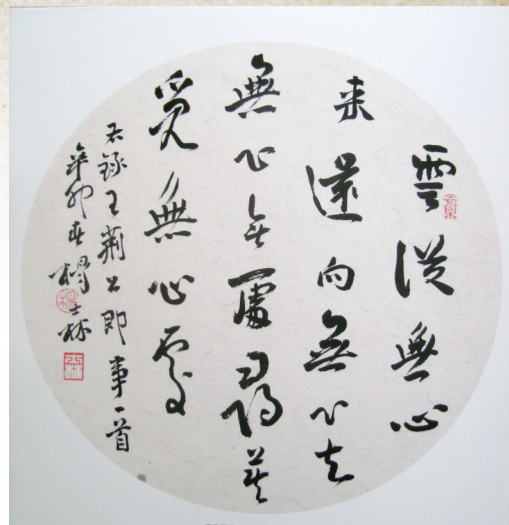 雲從無心
来還向無心去
無心無處尋莫
覓無心處
右錄王荊公即事一首
辛卯春楊士林